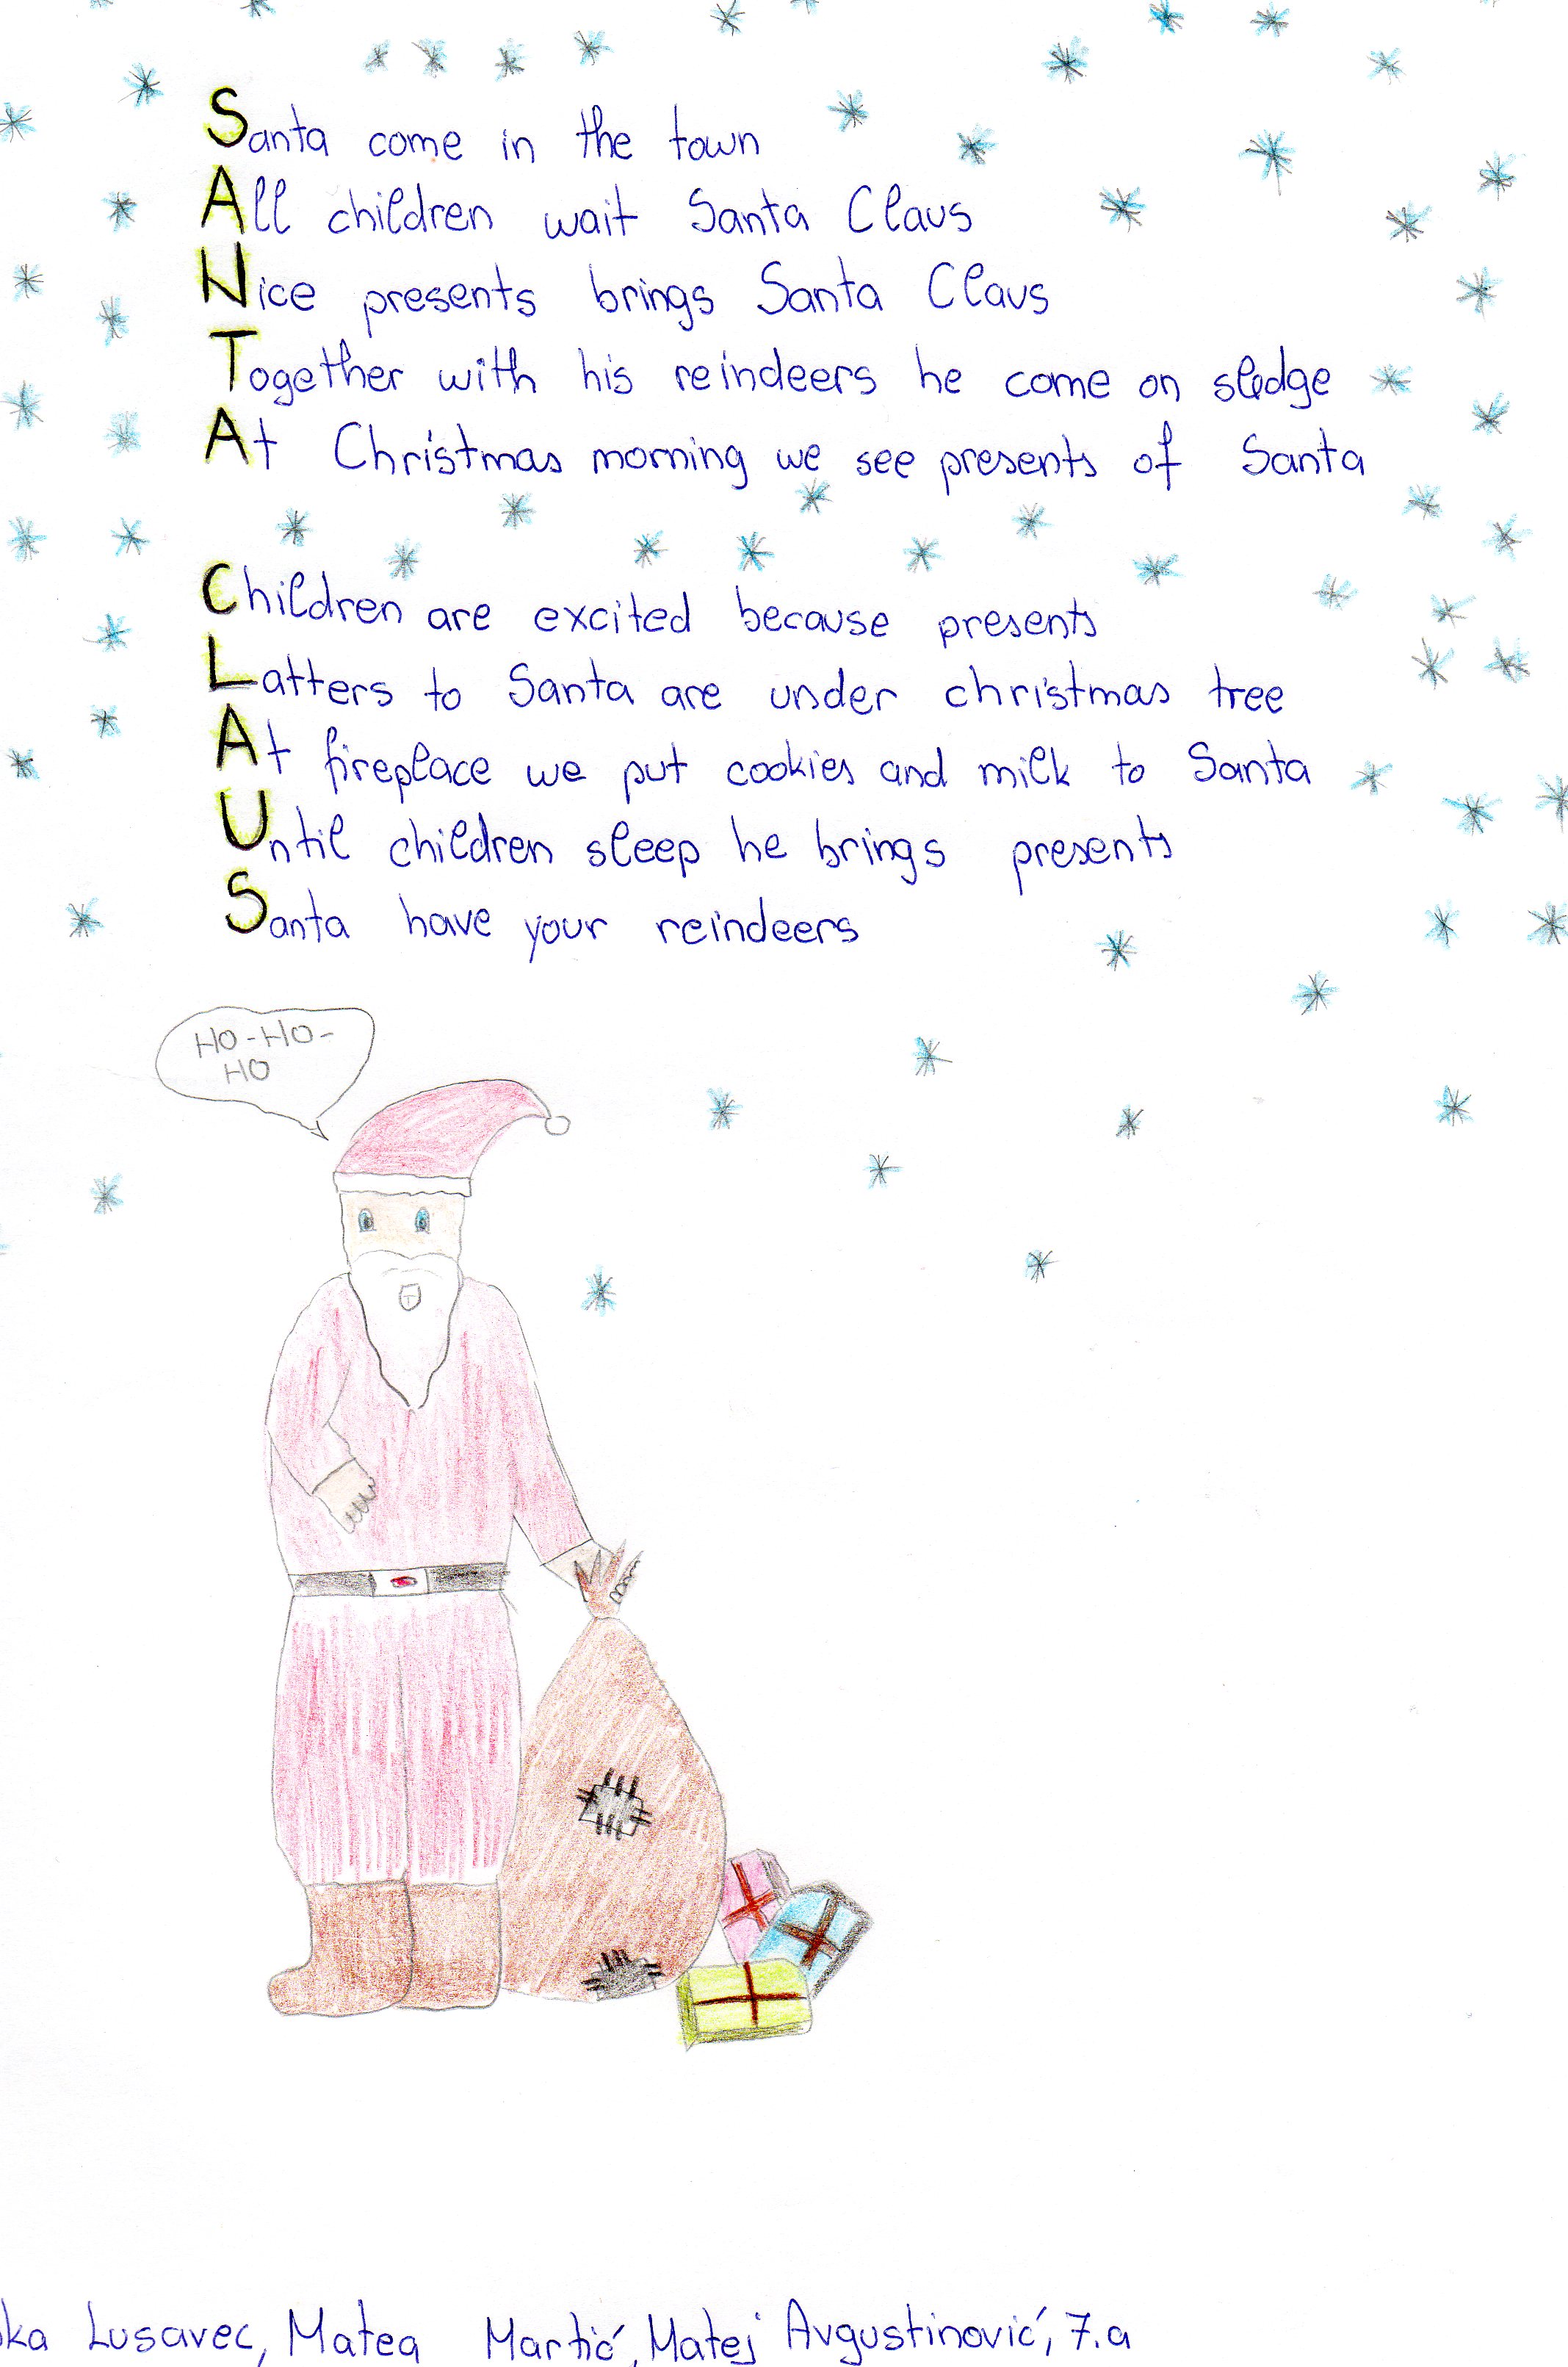 Santa come in the town
All children wait Santa Claus
Nice presents brings Santa Claus
Together with his reindeers he come on sledge
At Christmas morning we see presents of Santa
Children are excited because presents
Latters to Santa are under christmas tree
At fireplace we put cookies and milk to Santa
Until children sleep he brings presents
Santa have your reindeers
HO-HO-
HO
Lusavec, Matea Martić, Matej Avgustinović, 7.a